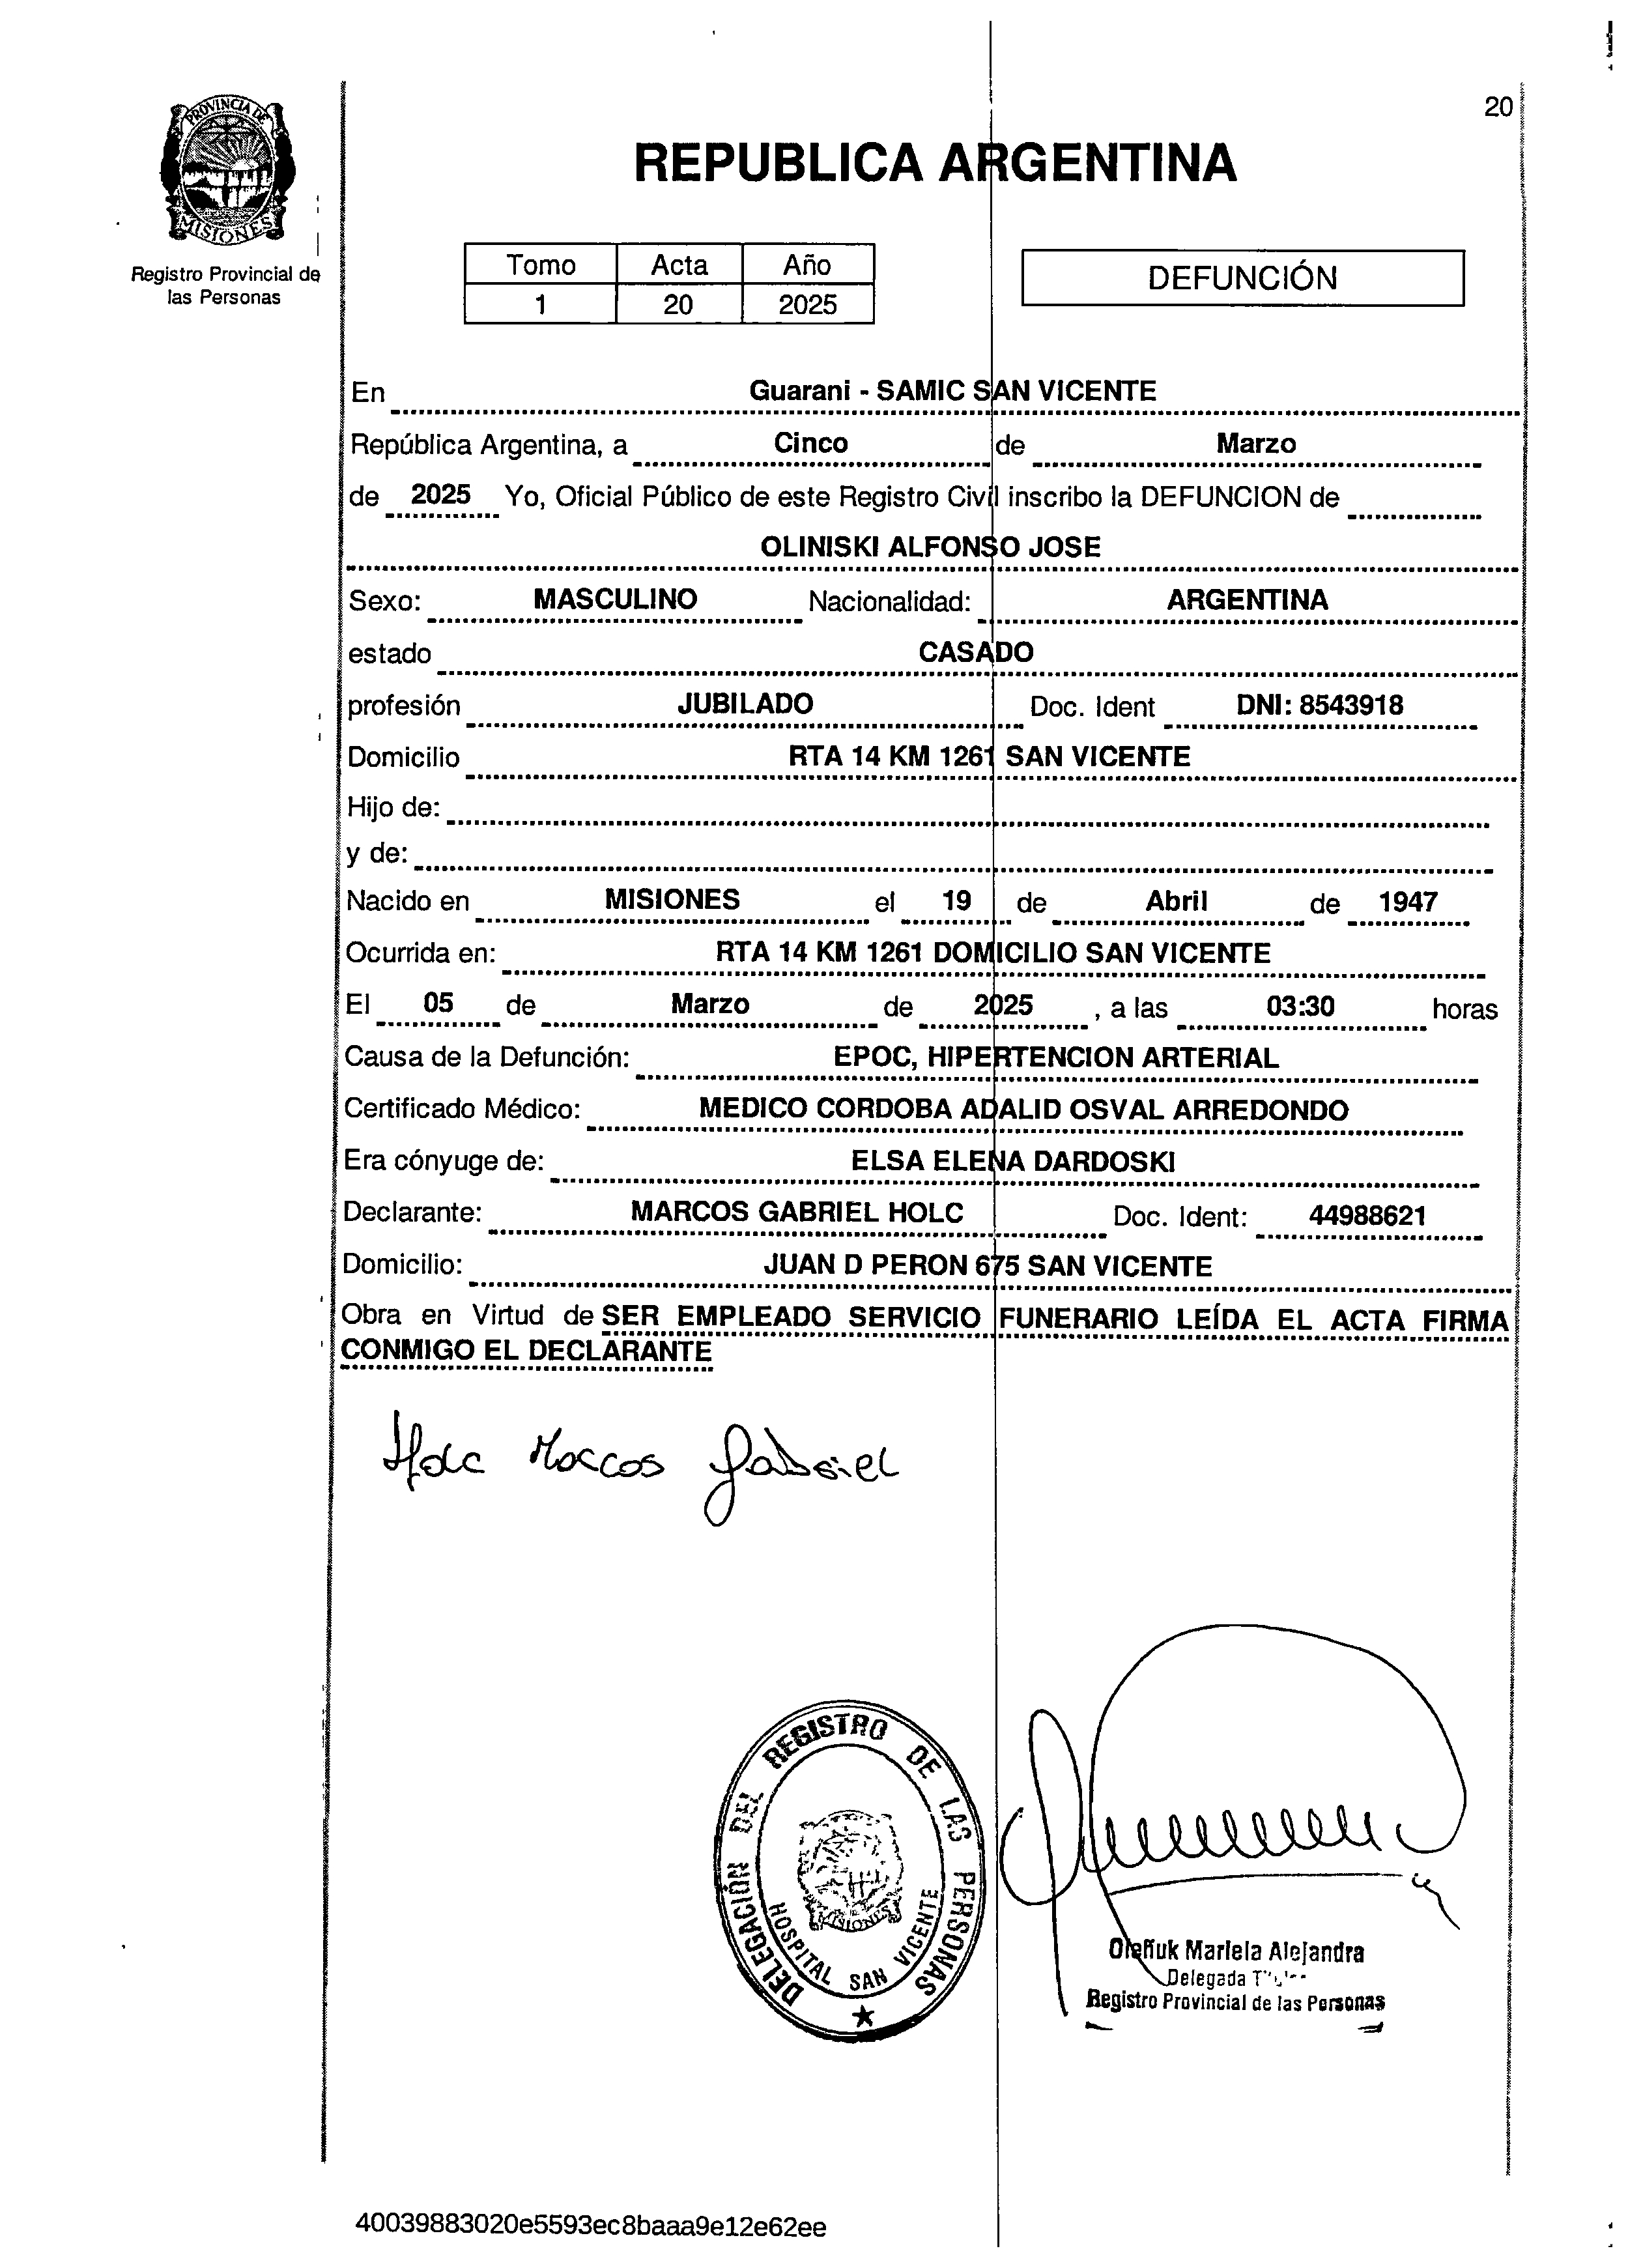 20
PROVINCIA DE
MISIONES
Registro Provincial de
las Personas
REPUBLICA ARGENTINA
Tomo Acta Año
1 20 2025
DEFUNCIÓN
En Guarani - SAMIC SAN VICENTE
República Argentina, a Cinco de Marzo
de 2025 Yo, Oficial Público de este Registro Civil inscribo la DEFUNCION de
OLINISKI ALFONSO JOSE
Sexo: MASCULINO Nacionalidad: ARGENTINA
estado CASADO
profesión JUBILADO Doc. Ident DNI: 8543918
Domicilio RTA 14 KM 1261 SAN VICENTE
Hijo de:
y de:
Nacido en MISIONES el 19 de Abril de 1947
Ocurrida en: RTA 14 KM 1261 DOMICILIO SAN VICENTE
El 05 de Marzo de 2025 , a las 03:30 horas
Causa de la Defunción: EPOC, HIPERTENCION ARTERIAL
Certificado Médico: MEDICO CORDOBA ADALID OSVAL ARREDONDO
Era cónyuge de: ELSA ELENA DARDOSKI
Declarante: MARCOS GABRIEL HOLC Doc. Ident: 44988621
Domicilio: JUAN D PERON 675 SAN VICENTE
Obra en Virtud de SER EMPLEADO SERVICIO FUNERARIO LEÍDA EL ACTA FIRMA
CONMIGO EL DECLARANTE
Holc Marcos Gabriel
DELEGACIÓN DEL REGISTRO DE LAS PERSONAS
HOSPITAL SAN VICENTE
MISIONES
Mariela Alejandra
Delegada
Registro Provincial de las Personas
40039883020e5593ec8baaa9e12e62ee